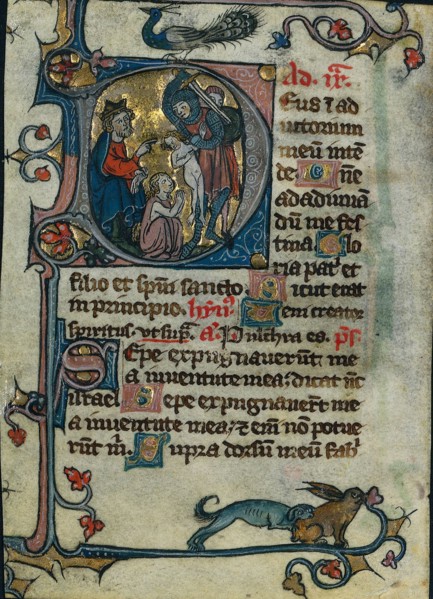 Ad. ix.
Deus ī ad
iutorium
meū intē
de. Dñe
adadiuuā
dū me fes
tina Glo
ria pat' et
filio et spūi sancto. Sicut erat
in principio. hyn'. Ueni creator
spiritus. ut sup̄. a. Pulchra es. ps.
Sepe expugnauerūt me
a iuuentute mea: dicat nūc
israel Sepe expugnauer̄t me
a iuuentute mea: eteni nō potue
rūt m. Supra dorsum meum fab'